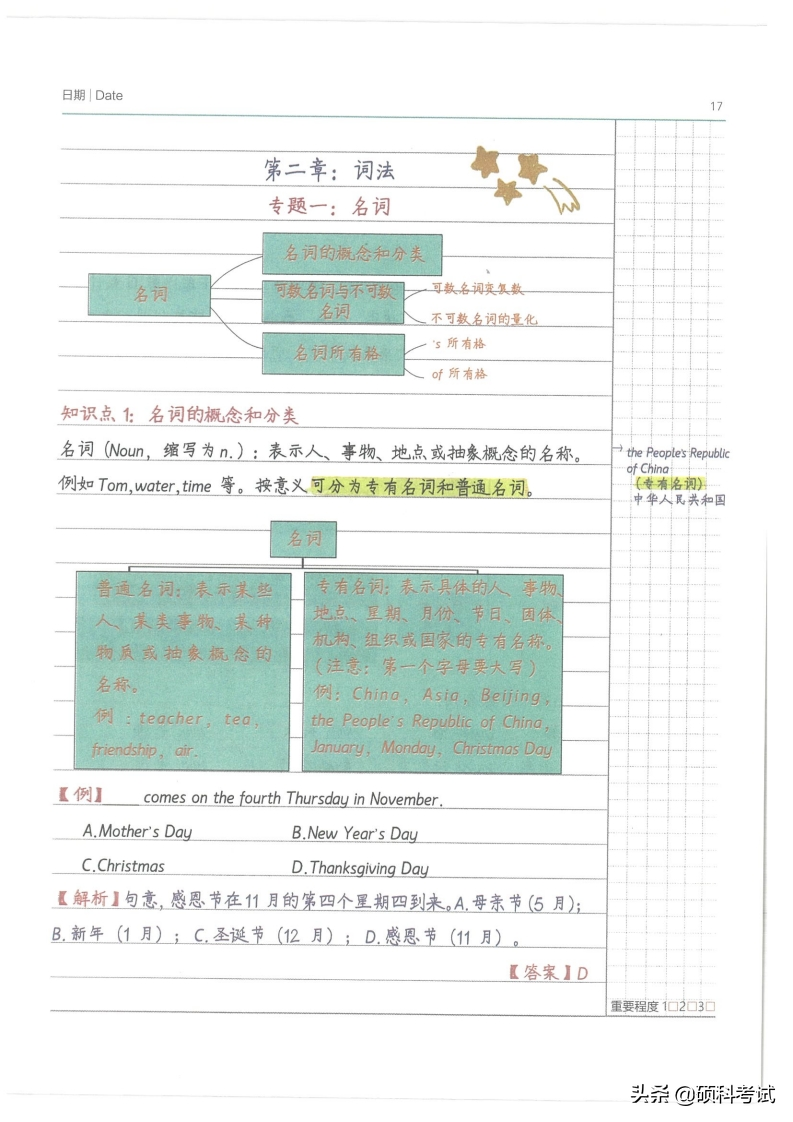 日期 | Date
17
第二章：词法
专题一：名词
名词的概念和分类
名词
可数名词与不可数
名词
可数名词变复数
不可数名词的量化
名词所有格
's 所有格
of 所有格
知识点 1：名词的概念和分类
名词（Noun，缩写为 n.）：表示人、事物、地点或抽象概念的名称。
例如 Tom,water,time 等。按意义可分为专有名词和普通名词。
→ the People's Republic
of China
（专有名词）
中华人民共和国
名词
普通名词：表示某些
人、某类事物、某种
物质或抽象概念的
名称。
例：teacher，tea，
friendship，air.
专有名词：表示具体的人、事物、
地点、星期、月份、节日、团体、
机构、组织或国家的专有名称。
（注意：第一个字母要大写）
例：China，Asia，Beijing，
the People's Republic of China，
January，Monday，Christmas Day
【例】____ comes on the fourth Thursday in November.
A.Mother's Day B.New Year's Day
C.Christmas D.Thanksgiving Day
【解析】句意，感恩节在11月的第四个星期四到来。A.母亲节(5 月)；
B.新年（1 月）；C.圣诞节（12 月）；D.感恩节（11月）。
【答案】D
重要程度 1□2□3□
头条 @硕科考试